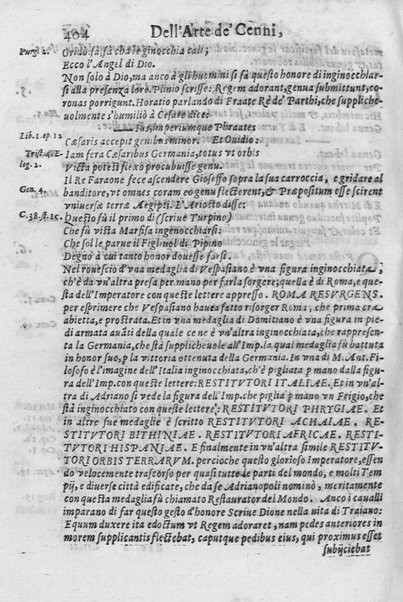 404 Dell'Arte de' Cenni,
Purg. 2. Gridò fà, fà che le ginocchia cali;
Ecco l'Angel di Dio.
Non solo à Dio, ma anco à gli huomini si fà questo honore di inginocchiar-
si alla presenza loro. Plinio scrisse: Regem adorant, genua submittunt, co
ronas porrigunt. Horatio parlando di Fraate Rè de' Parthi, che suppliche-
uolmente s'humiliò à Cesare dice:
Ius, imperiumque Phraates
Lib. 1. ep. 12 Cæsaris accepit genibus minor. Et Ouidio:
Trist. 4. E- Iam fera Cæsaribus Germania, totus vt orbis
leg. 2. Victa potest flexo procubuisse genu.
Il Re Faraone fece ascendere Gioseffo sopra la sua carroccia, e gridare al
Gen. 4. banditore, vt omnes coram eo genu flecterent, & Præpositum esse scirent
vniuersæ terræ Aegipti. L'Ariosto disse:
C. 38. st. 1c. Questo fù il primo di (scriue Turpino)
Che fù vista Marfisa ingenocchiarsi:
Che sol le parue il Figliuol di Pipino
Degno à cui tanto honor douesse farsi.
Nel rouescio d'vna medaglia di Vespasiano è vna figura inginocchiata,
ch'è da vn'altra presa per mano per farla sorgere; quella è di Roma, e que-
sta dell'Imperatore con queste lettere appresso. ROMA RESVRGENS.
per esprimere che Vespasiano haueа fatto risorger Roma, che prima era
abietta, e prostrata. Et in vna medaglia di Domitiano è vna figura in pie-
di armata auāti della quale ce ne è vn'altra inginocchiata, che rappresen-
ta la Germania, che stà supplicheuole all'Imp. la qual medaglia fù battuta
in honor suo, p la vittoria ottenuta della Germania. In vna di M. Ant. Fi-
losofo è l'imagine dell'Italia inginocchiata, ch'è pigliata p mano dalla figu-
ra dell'Imp. con queste lettere: RESTITVTORI ITALIAE. Et in vn'al-
tra di Adriano si vede la figura dell'Imp. che piglia p mano vn Frigio, che
stà inginocchiato con queste lettere: RESTITVTORI PHRYGIAE. Et
in altre sue medaglie è scritto RESTITVTORI ACHAIAE, RE-
STITVTORI BITHINIAE. RESTITVTORI AFRICAE. RESTI-
TVTORI HISPANIAE. E finalmente in vn'altra simile RESTITV-
TORI ORBIS TERRARVM. percioche questo glorioso Imperatore, essen
do velocemente trascorso per quasi tutte le parti del mondo, e molti Tem
pij, e diuerse città edificate, che da se Adrianopoli nominò, meritamente
con questa medaglia fù chiamato Restaurator del Mondo. Anco i caualli
imparano di far questo gesto d'honore Scriue Dione nella vita di Traiano:
Equum duxere ita edoctum vt Regem adoraret, nam pedes anteriores in
morem supplicantis flectebat, caputque pedibus eius, qui proximus esset
subijciebat